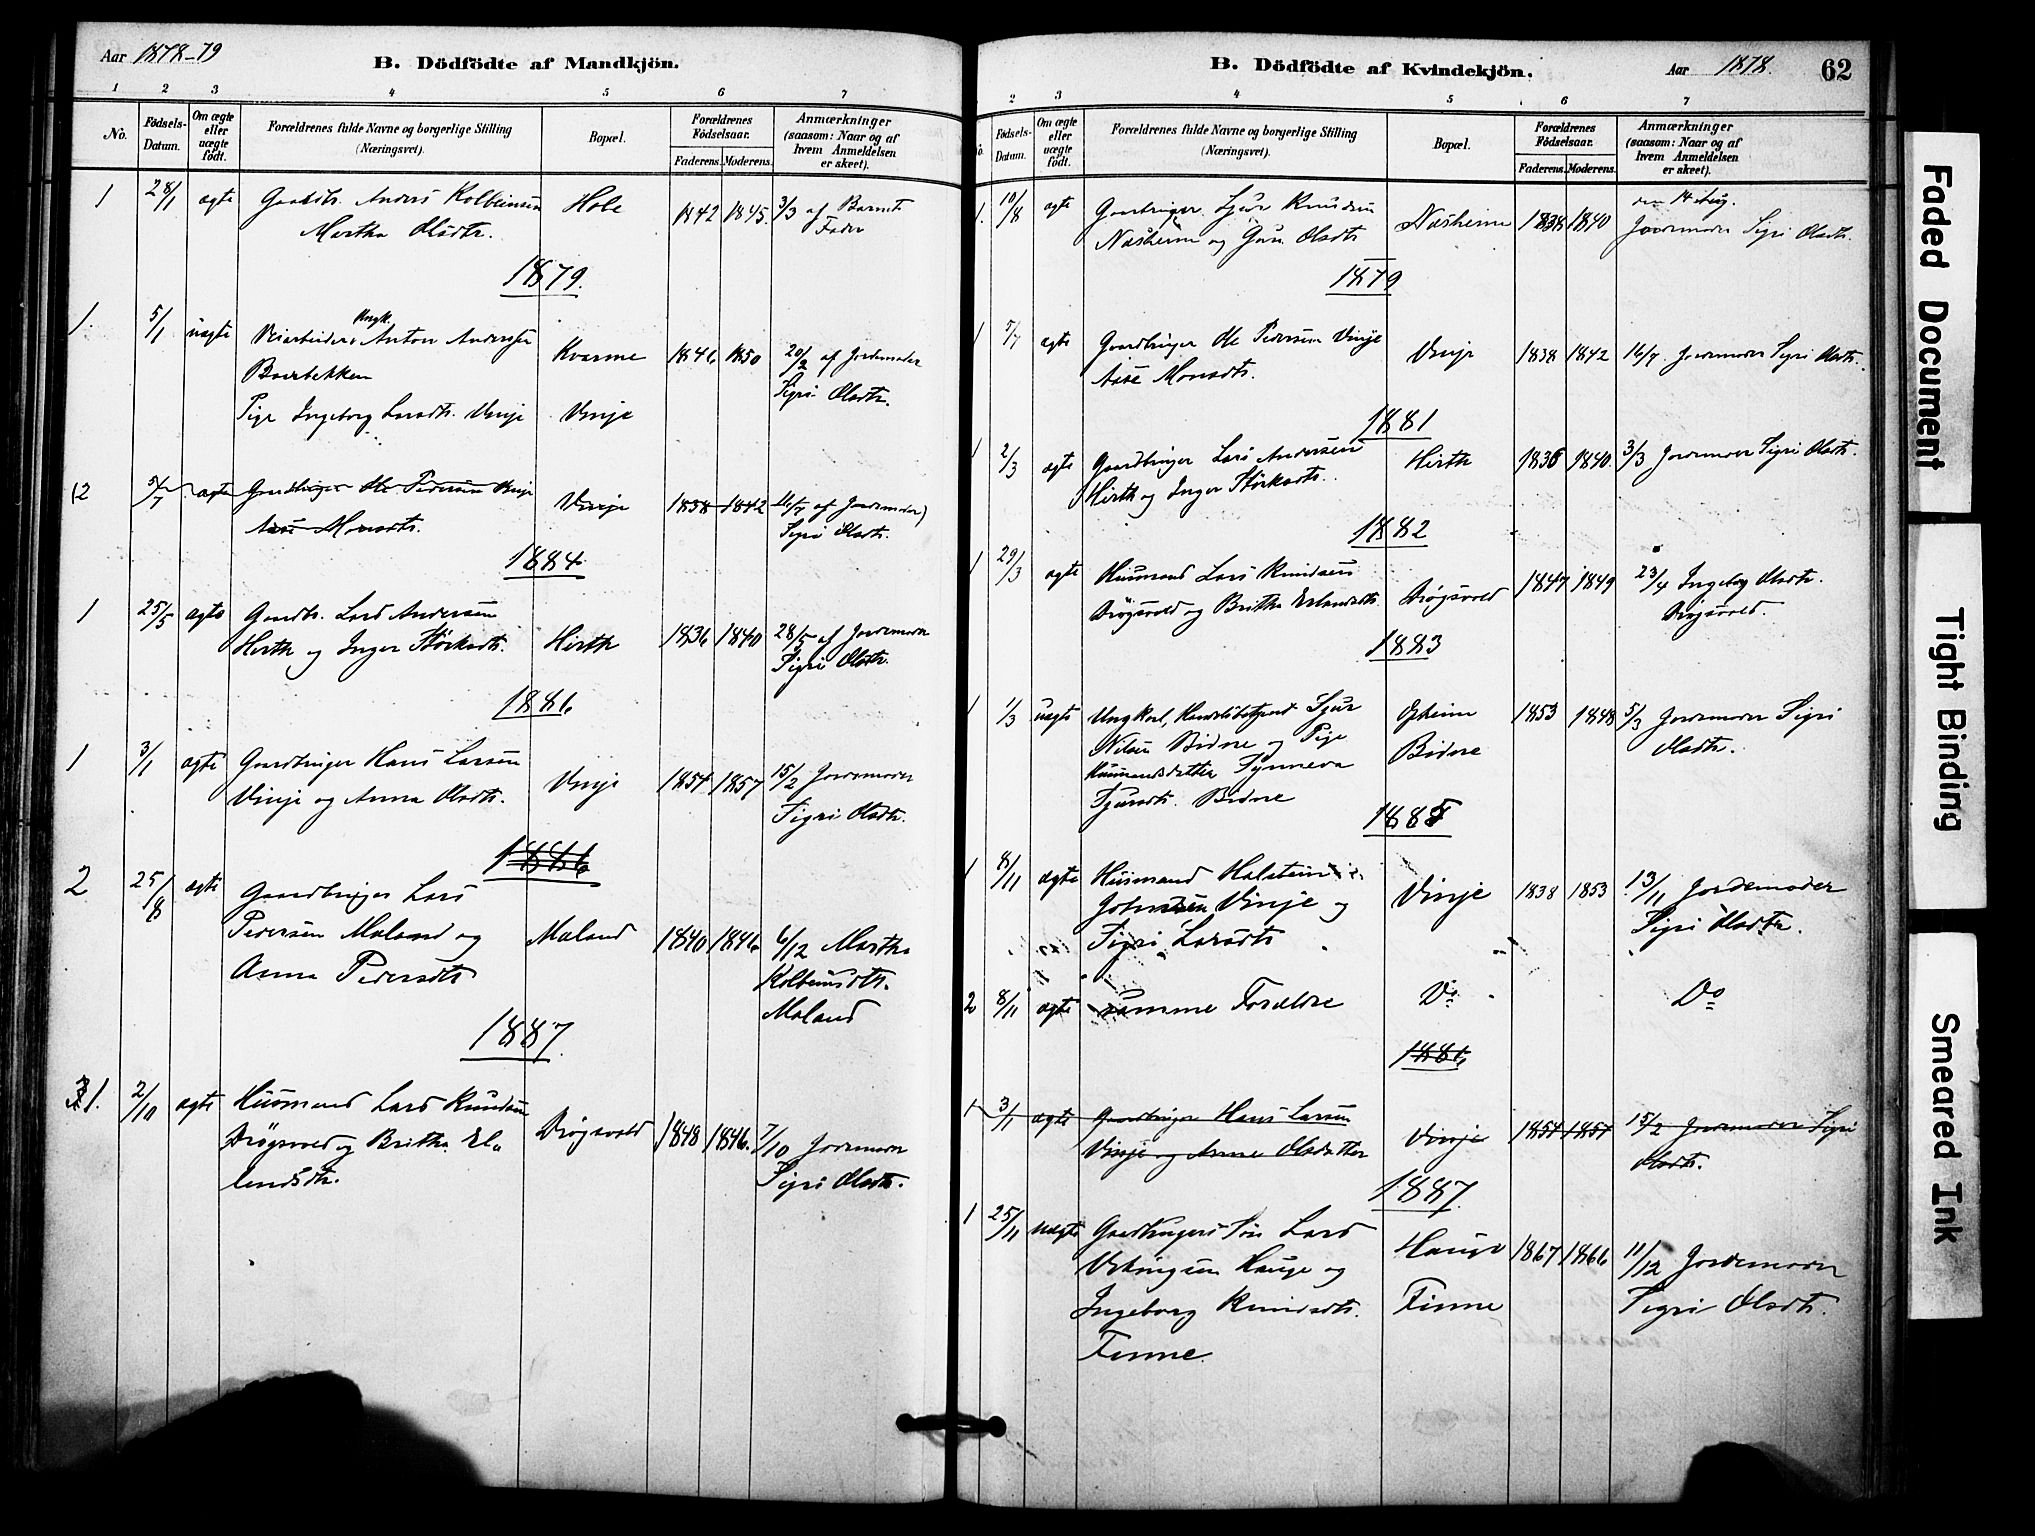 Aar 1878-79
B. Dödfödte af Mandkjön.
1 2 3 4 5 6 7
No.
Födsels-Datum.
Om ægte eller uægte födt.
Forældrenes fulde Navne og borgerlige Stilling (Næringsvei).
Bopæl.
Forældrenes Födselsaar.
Faderens. Moderens.
Anmærkninger (saasom: Naar og af hvem Anmeldelsen er skeet).
1 28/1 ægte Gaardbr. Anders Kolbeinsen Hole 1842 1845. 3/3 af Barnets
Martha Olsdtr. Fader
1879.
1. 5/1 uægte Veiarbeider Ungk. Anton Andersen Kvarme 1846 1850 20/2 af Jordemoder
Sigri Olsdtr.
Pige Ingeborg Larsdtr. Vinje Vinje
(2 5/7 ægte Gaardbruger Ole Pedersen Vinje Vinje 1838 1842 16/7 af Jordemoder)
Monsdtr. Sigri Olsdtr.
1884.
1 25/5 ægte Gaardbr. Lars Andersen Hirth 1836 1840 28/5 af Jordemoder
Hirth og Inger Störksdtr. Sigri Olsdtr.
1886
1 3/1 ægte Gaardbruger Hans Larsen Vinje 1854 1857 15/2 Jordemoder
Vinje og Anna Olsdtr. Sigri Olsdtr.
1886
2 25/8 ægte Gaardbruger Lars
Pedersen Maland og Maland 1840 1846 6/12 Martha
Anna Pedersdtr Kolbeinsdtr.
Maland
1887.
1. 2/10 ægte Huusmand Lars Knudsen Drögsvold 1848 1846. 7/10 Jordemoder
Drögsvold og Britha Er-
lendsdtr. Sigri Olsdtr.
B. Dödfödte af Kvindekjön.
Aar 1878.
62
2 3 4 5 6 7
Födsels-Datum.
Om ægte eller uægte födt.
Forældrenes fulde Navne og borgerlige Stilling (Næringsvei).
Bopæl.
Forældrenes Födselsaar.
Faderens. Moderens.
Anmærkninger (saasom: Naar og af hvem Anmeldelsen er skeet).
1. 10/8 ægte Gaardbruger Sjur Knudsen Næsheim 1838 1840 den 14 Aug.
Næsheim og Gun. Olsdtr Jordemoder Sigri Olsdtr.
1879
1 5/7 ægte Gaardbruger Ole Pedersen Vinje Vinje 1838 1842 16/7. Jordemoder Sigri Olsdtr.
Monsdtr.
1881
1 2/3 ægte Gaardbruger Lars Andersen Hirth 1836 1840. 3/3 Jordemoder Sigri Olsdtr.
Hirth og Inger Störksdtr.
1882
1 29/3 ægte Huusmand Lars Knudsen Drögsvold 1847 1849 23/4 Ingeborg Olsdtr.
Drögsvold og Britha Erlandsdtr. Drögsvold.
1883
1 1/3 uægte Ungkarl, Sjur Opheim 1853 1848 5/3 Jordemoder Sigri
Nilsen Bidne og Pige Bidne Olsdtr.
Huusmandsdatter Synneva
Sjursdtr. Bidne
1885
1 8/11 ægte Huusmand Halstein Vinje 1838 1853 13/11 Jordemoder
Johnsen Vinje og Sigri Olsdtr.
Sigri Larsdtr
2 8/11 ægte samme Forældre Do Do
1886
1 3/1 ægte Gaardbruger Hans Larsen Vinje 1854 1857 15/2 Jordemoder Sigri
Vinje og Anna Olsdatter Olsdtr.
1887.
1 25/11 uægte Gaardbrugers Sön Lars Hauge 1867 1866 11/12 Jordemoder
Hauge og
Ingeborg Knudsdtr. Finne Sigri Olsdtr.
Finne.
Faded Document
Tight Binding
Smeared Ink